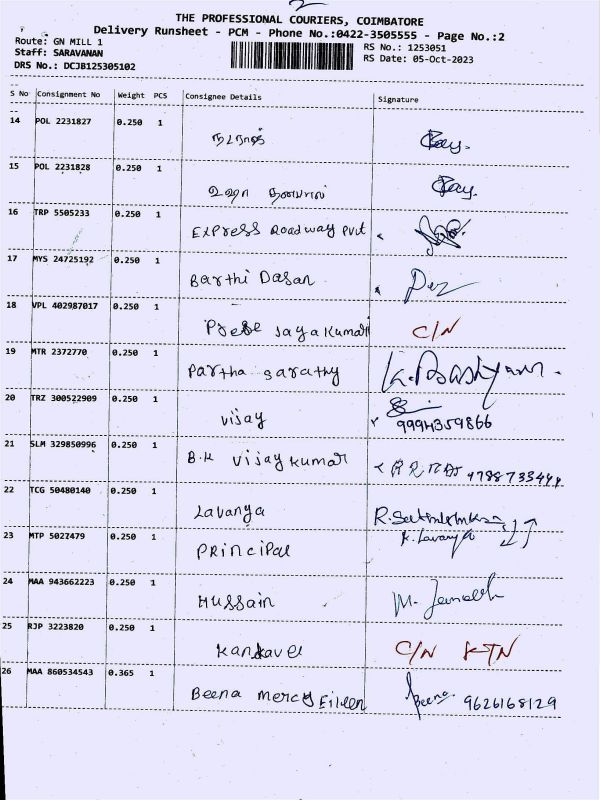 2
THE PROFESSIONAL COURIERS, COIMBATORE
Delivery Runsheet - PCM - Phone No.:0422-3505555 - Page No.:2
Route: GN MILL 1
RS No.: 1253051
Staff: SARAVANAN
RS Date: 05-Oct-2023
DRS No.: DCJB125305102
S No Consignment No Weight PCS Consignee Details Signature
14 POL 2231827 0.250 1
15 POL 2231828 0.250 1
16 TRP 5505233 0.250 1 Express Roadway Pvt
17 MYS 24725192 0.250 1 Barthi Dasan
18 VPL 402987017 0.250 1 Jayakumar C/N
19 MTR 2372770 0.250 1 Partha sarathy
20 TRZ 300522909 0.250 1 vijay 9994359866
21 SLM 329850996 0.250 1 B.K vijaykumar
22 TCG 50480140 0.250 1 Lavanya
23 MTP 5027479 0.250 1 Principal K. Lavanya
24 MAA 943662223 0.250 1 Hussain
25 RJP 3223820 0.250 1 C/N KTN
26 MAA 860534543 0.365 1 Beena mercy Eileen Beena 9626168129